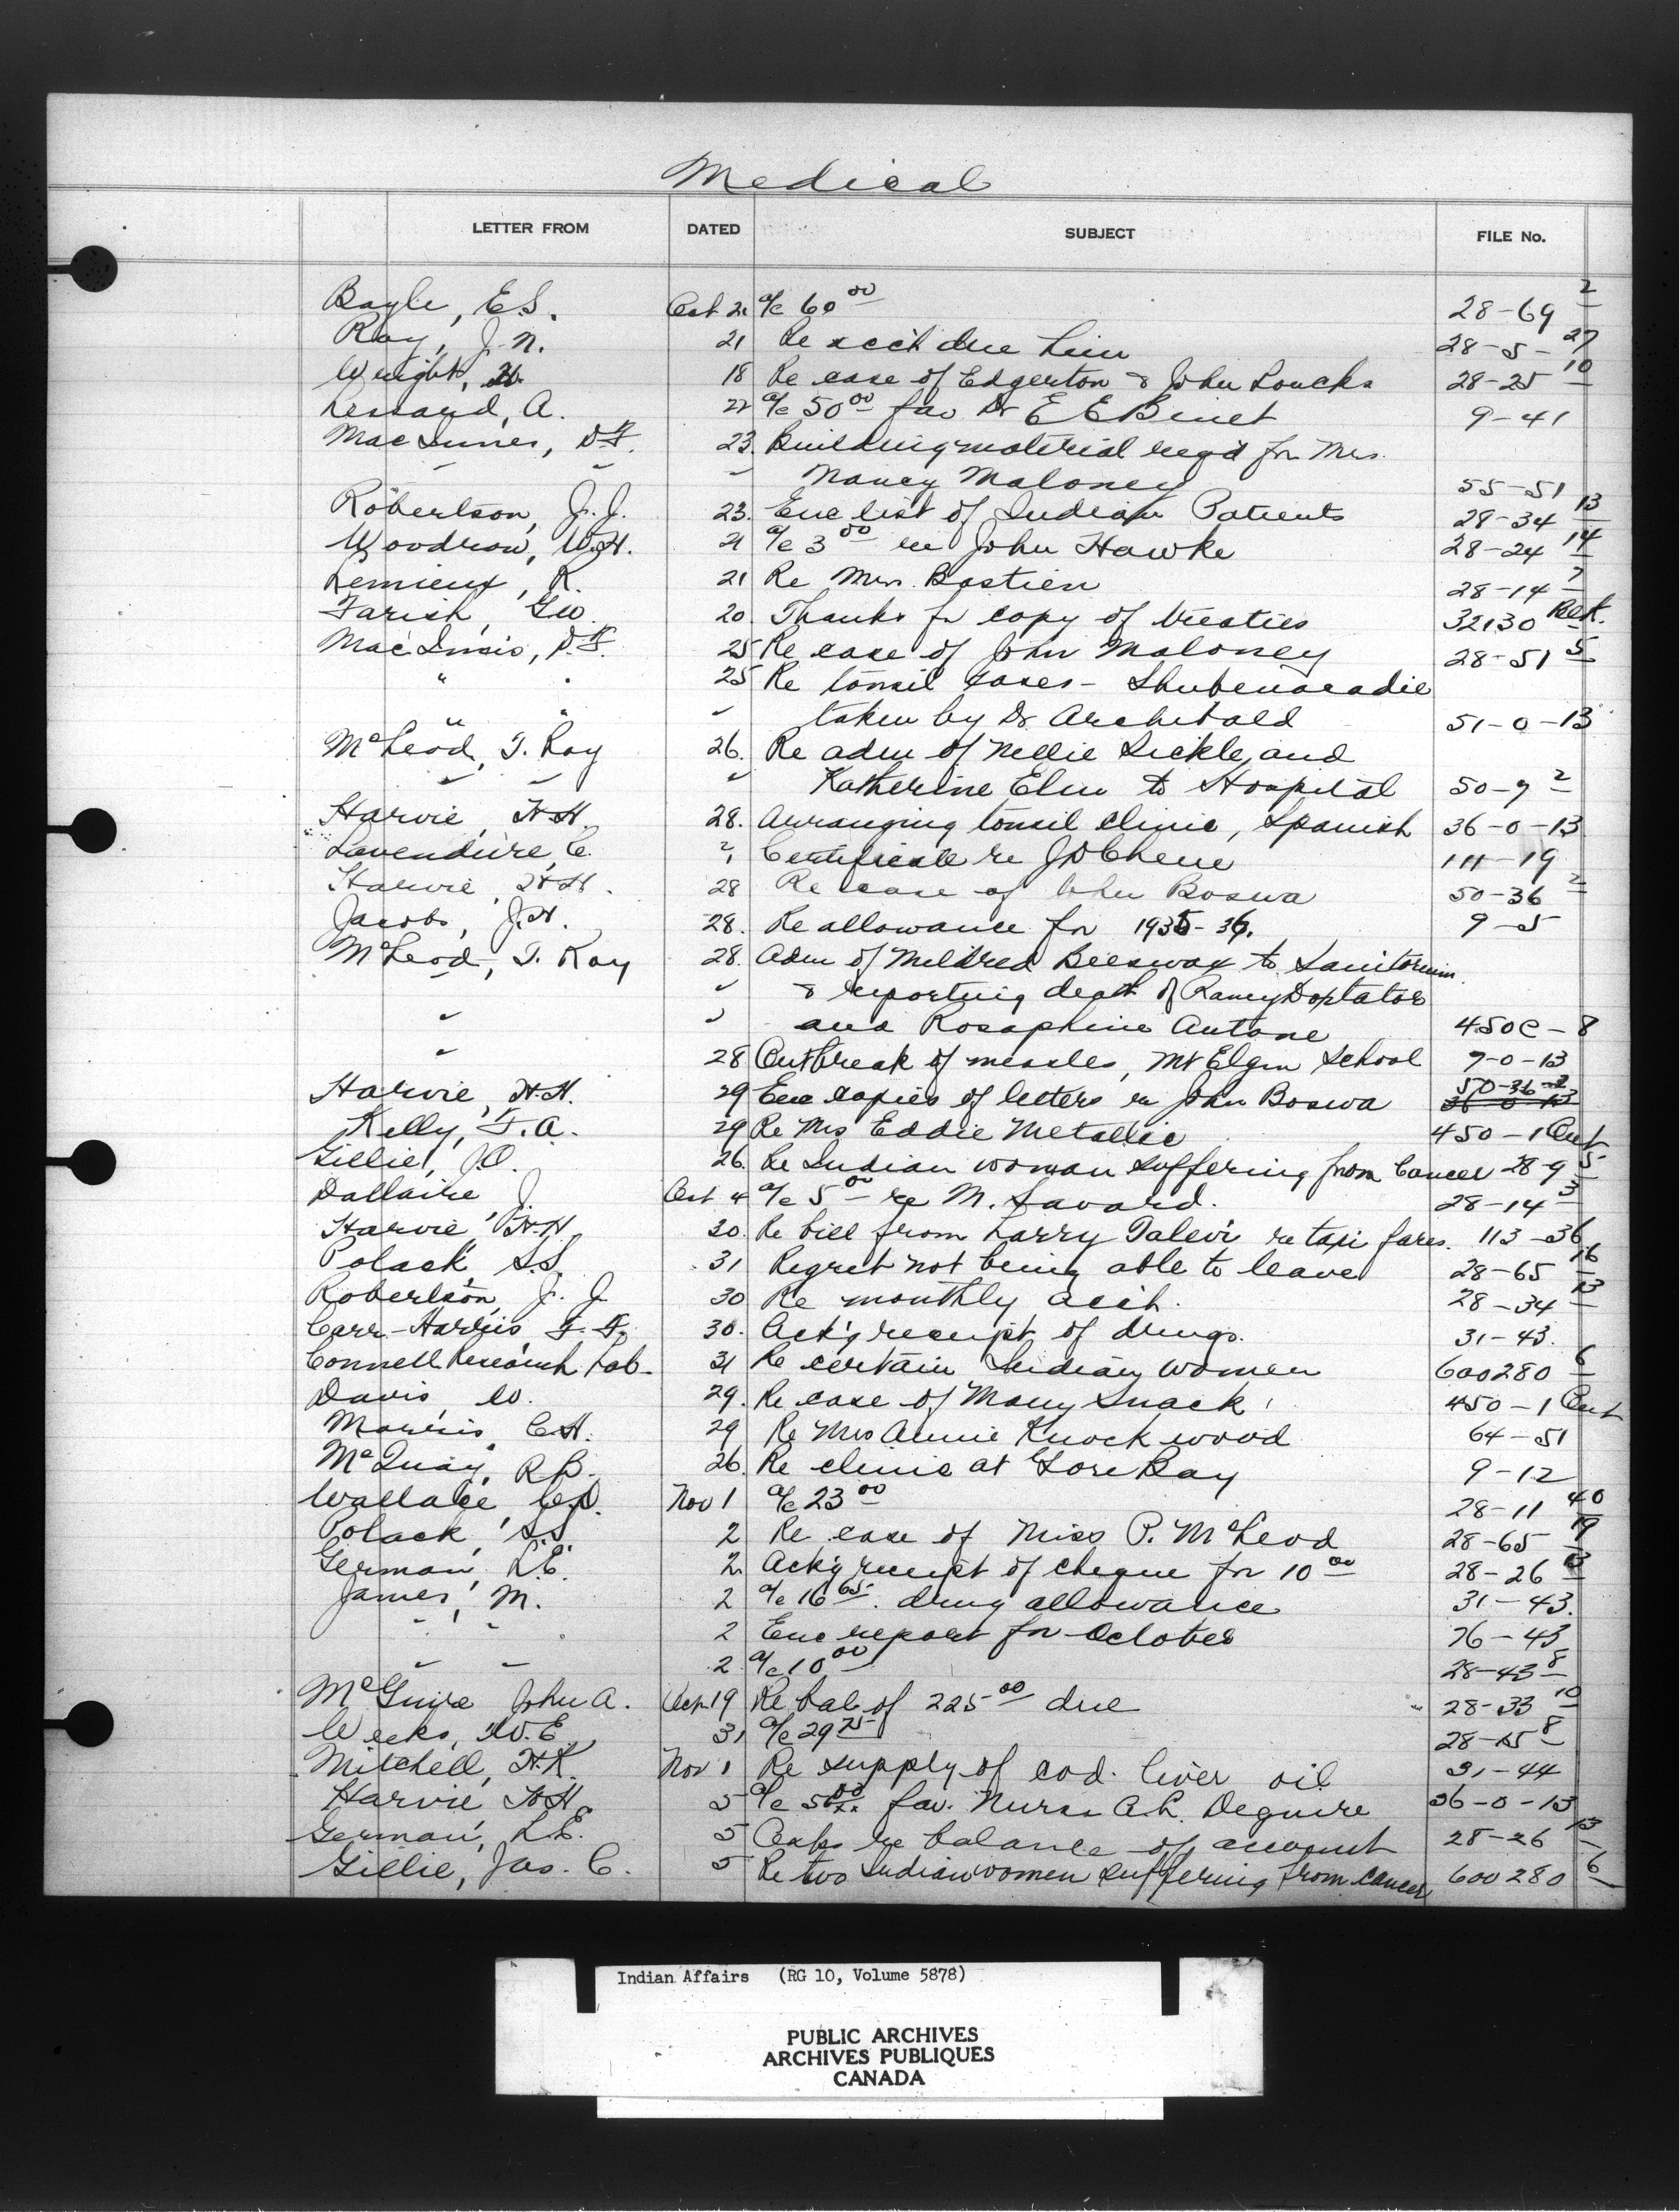 Medical
LETTER FROM DATED SUBJECT FILE No.
Bayle, E.S. Oct 21 a/c 60 00 28-69 2
Ray, J. N. 21 Re acct due him 28-5-27
Wright, W. 18 Re case of Edgerton & John Loucks 28-25 10
Lessard, A. 22 a/c 50 00 fav. Dr E E Binet 9-41
MacInnes, D.F. 23. Building material reqd for Mrs.
" " " Nancy Maloney 55-51
Robertson, J. J. 23. Enc list of Indian Patients 28-34 13
Woodrow, W.H. 21 a/c 3 00 re John Hawke 28-24 14
Lemieux, R. 21 Re Mrs. Bastien 28-14 7
Farish, Geo. 20. Thanks for copy of treaties 32130
MacInnis, D.F. 25 Re case of John Maloney 28-51 5
" " 25 Re tonsil cases - Shubenacadie
" " " taken by Dr Archibald 51-0-13
McLeod, T. Roy 26. Re adm of Nellie Sickle, and
" " " Katherine Elm to Hospital 50-7 2
Harvie, H.H. 28. Arranging tonsil clinic, Spanish 36-0-13
Lavendure, C. ? Certificate re J D Chene 114-19
Harvie, H.H. 28 Re case of John Boswa 50-36 2
Jacobs, J.H. 28. Re allowance for 1935-36. 9-5
McLeod, T. Roy 28. Adm of Mildred Beeswax to Sanitorium
" " & reporting death of Doxtator
" " and Rosaphine Antone 450C-8
" 28 Outbreak of measles, Mt Elgin School 7-0-13
Harvie, H.H. 29 Enc copies of letters re John Boswa 50-36-2
36-0-13
Kelly, F.A. 29 Re Mrs Eddie Metallic 450-1 Ont
Gillie, J.O. 26. Re Indian woman suffering from Cancer 28-9 5
Dallaire J. Oct 4 a/c 5 00 re M. Savard. 28-14 3
Harvie, H.H. 30. Re bill from Larry Talevi re taxi fares. 113-36
Polack, S.S. 31 Regret not being able to leave 28-65 16
Robertson, J. J. 30 Re monthly acct. 28-34 13
Carr-Harris F. F. 30. Ack'g receipt of drugs. 31-43.
Connell Research Lab. 31 Re certain Indian women 600280 6
Davis, W. 29. Re case of Mary Snack 450-1 Ont
Morris, C.H. 29 Re Mrs Annie Knockwood 64-51
McQuay, R.B. 26. Re clinic at Gore Bay 9-12
Wallace, C.D. Nov 1 a/c 23 00 28-11 40
Polack, S.S. 2 Re case of Miss P. McLeod 28-65 19
German, L.E. 2. Ack'g receipt of cheque for 10 00 28-26 13
James, M. 2 a/c 16 65. drug allowance 31-43.
" " 2 Enc report for October 76-43
" " 2 a/c 10 00 28-43 8
McGuire John A. 19 Re bal of 225 00 due 28-33 10
Weeks, W.E. 31 a/c 29 75 28-15 8
Mitchell, H.K. Nov 1 Re supply of cod liver oil 31-44
Harvie H.H. 5 a/c fav. Nurse A.L. Deguire 36-0-13
German, L.E. 5 Asks re balance of account 28-26 13
Gillie, Jas. C. 5 Re two Indian women suffering from cancer 600280 6
Indian Affairs (RG 10, Volume 5878)
PUBLIC ARCHIVES
ARCHIVES PUBLIQUES
CANADA